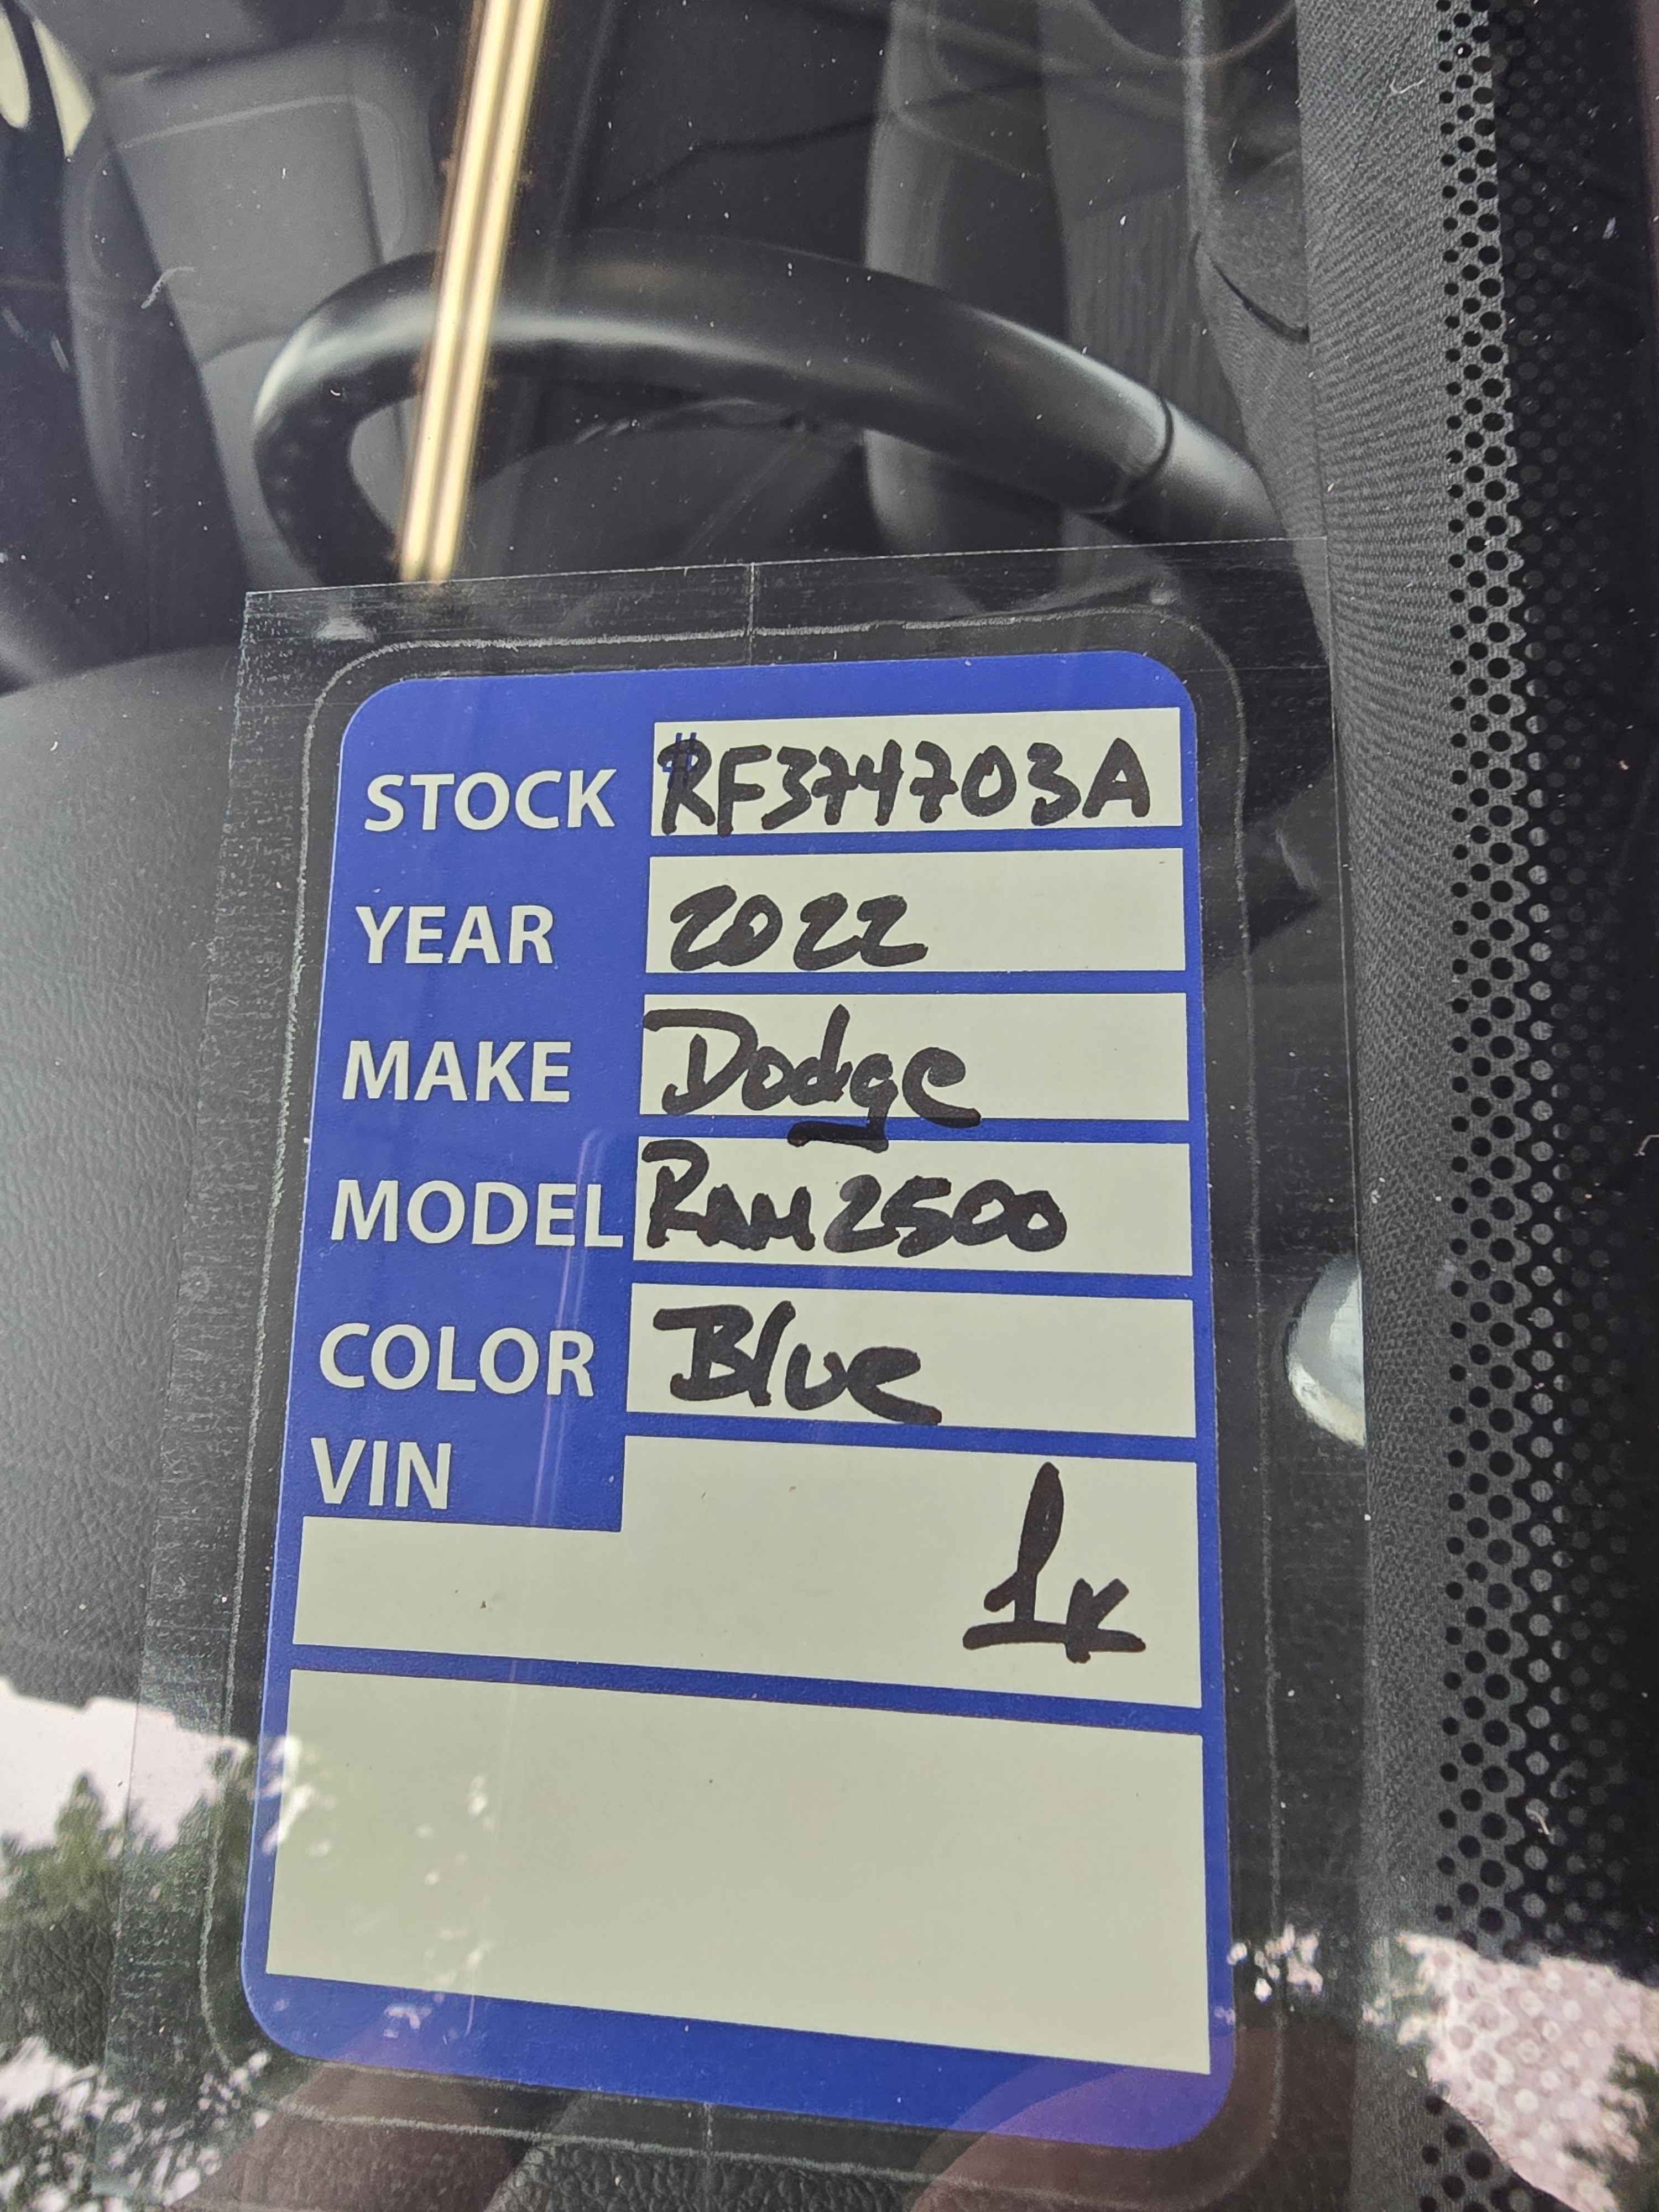 STOCK #RF374703A
YEAR 2022
MAKE Dodge
MODEL RAM 2500
COLOR Blue
VIN
1K